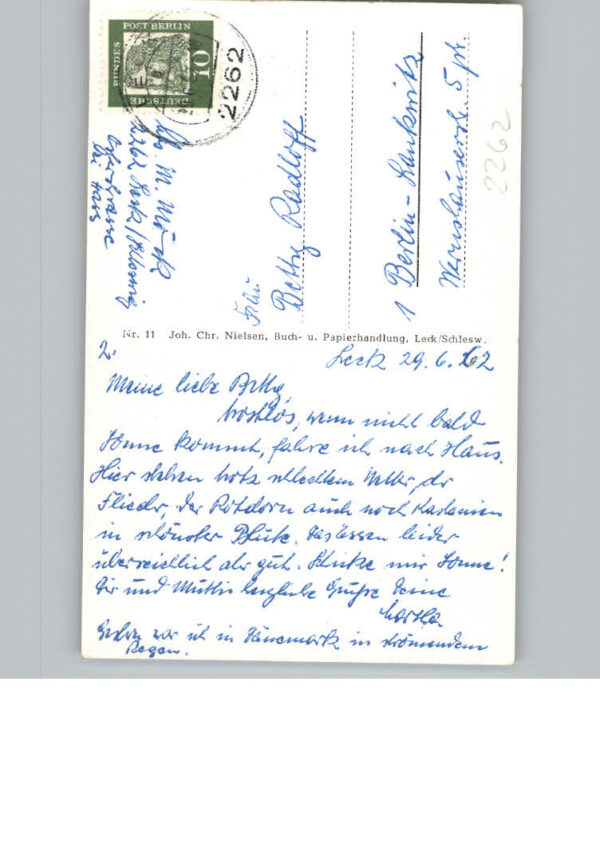 DEUTSCHE BUNDES POST BERLIN
10
2262
M. 
2262 Leck/
Frau
Betty Radloff
1 Berlin-Lankwitz
5 pt.
2262
Nr. 11 Joh. Chr. Nielsen, Buch- u. Papierhandlung, Leck/Schlesw.
2.
Leck 29.6.62
Meine liebe Betty,
trostlos, wenn nicht bald
Sonne kommt, fahre ich nach Haus.
Hier stehen trotz schlechtem Wetter, der
Flieder, der Rotdorn auch noch Kastanien
in schönster Blüte. Das Essen leider
überreichlich aber gut. Schicke mir Sonne!
Dir und Mutti herzliche Grüße Deine
Gestern war ich in Dänemark in strömendem
Regen.